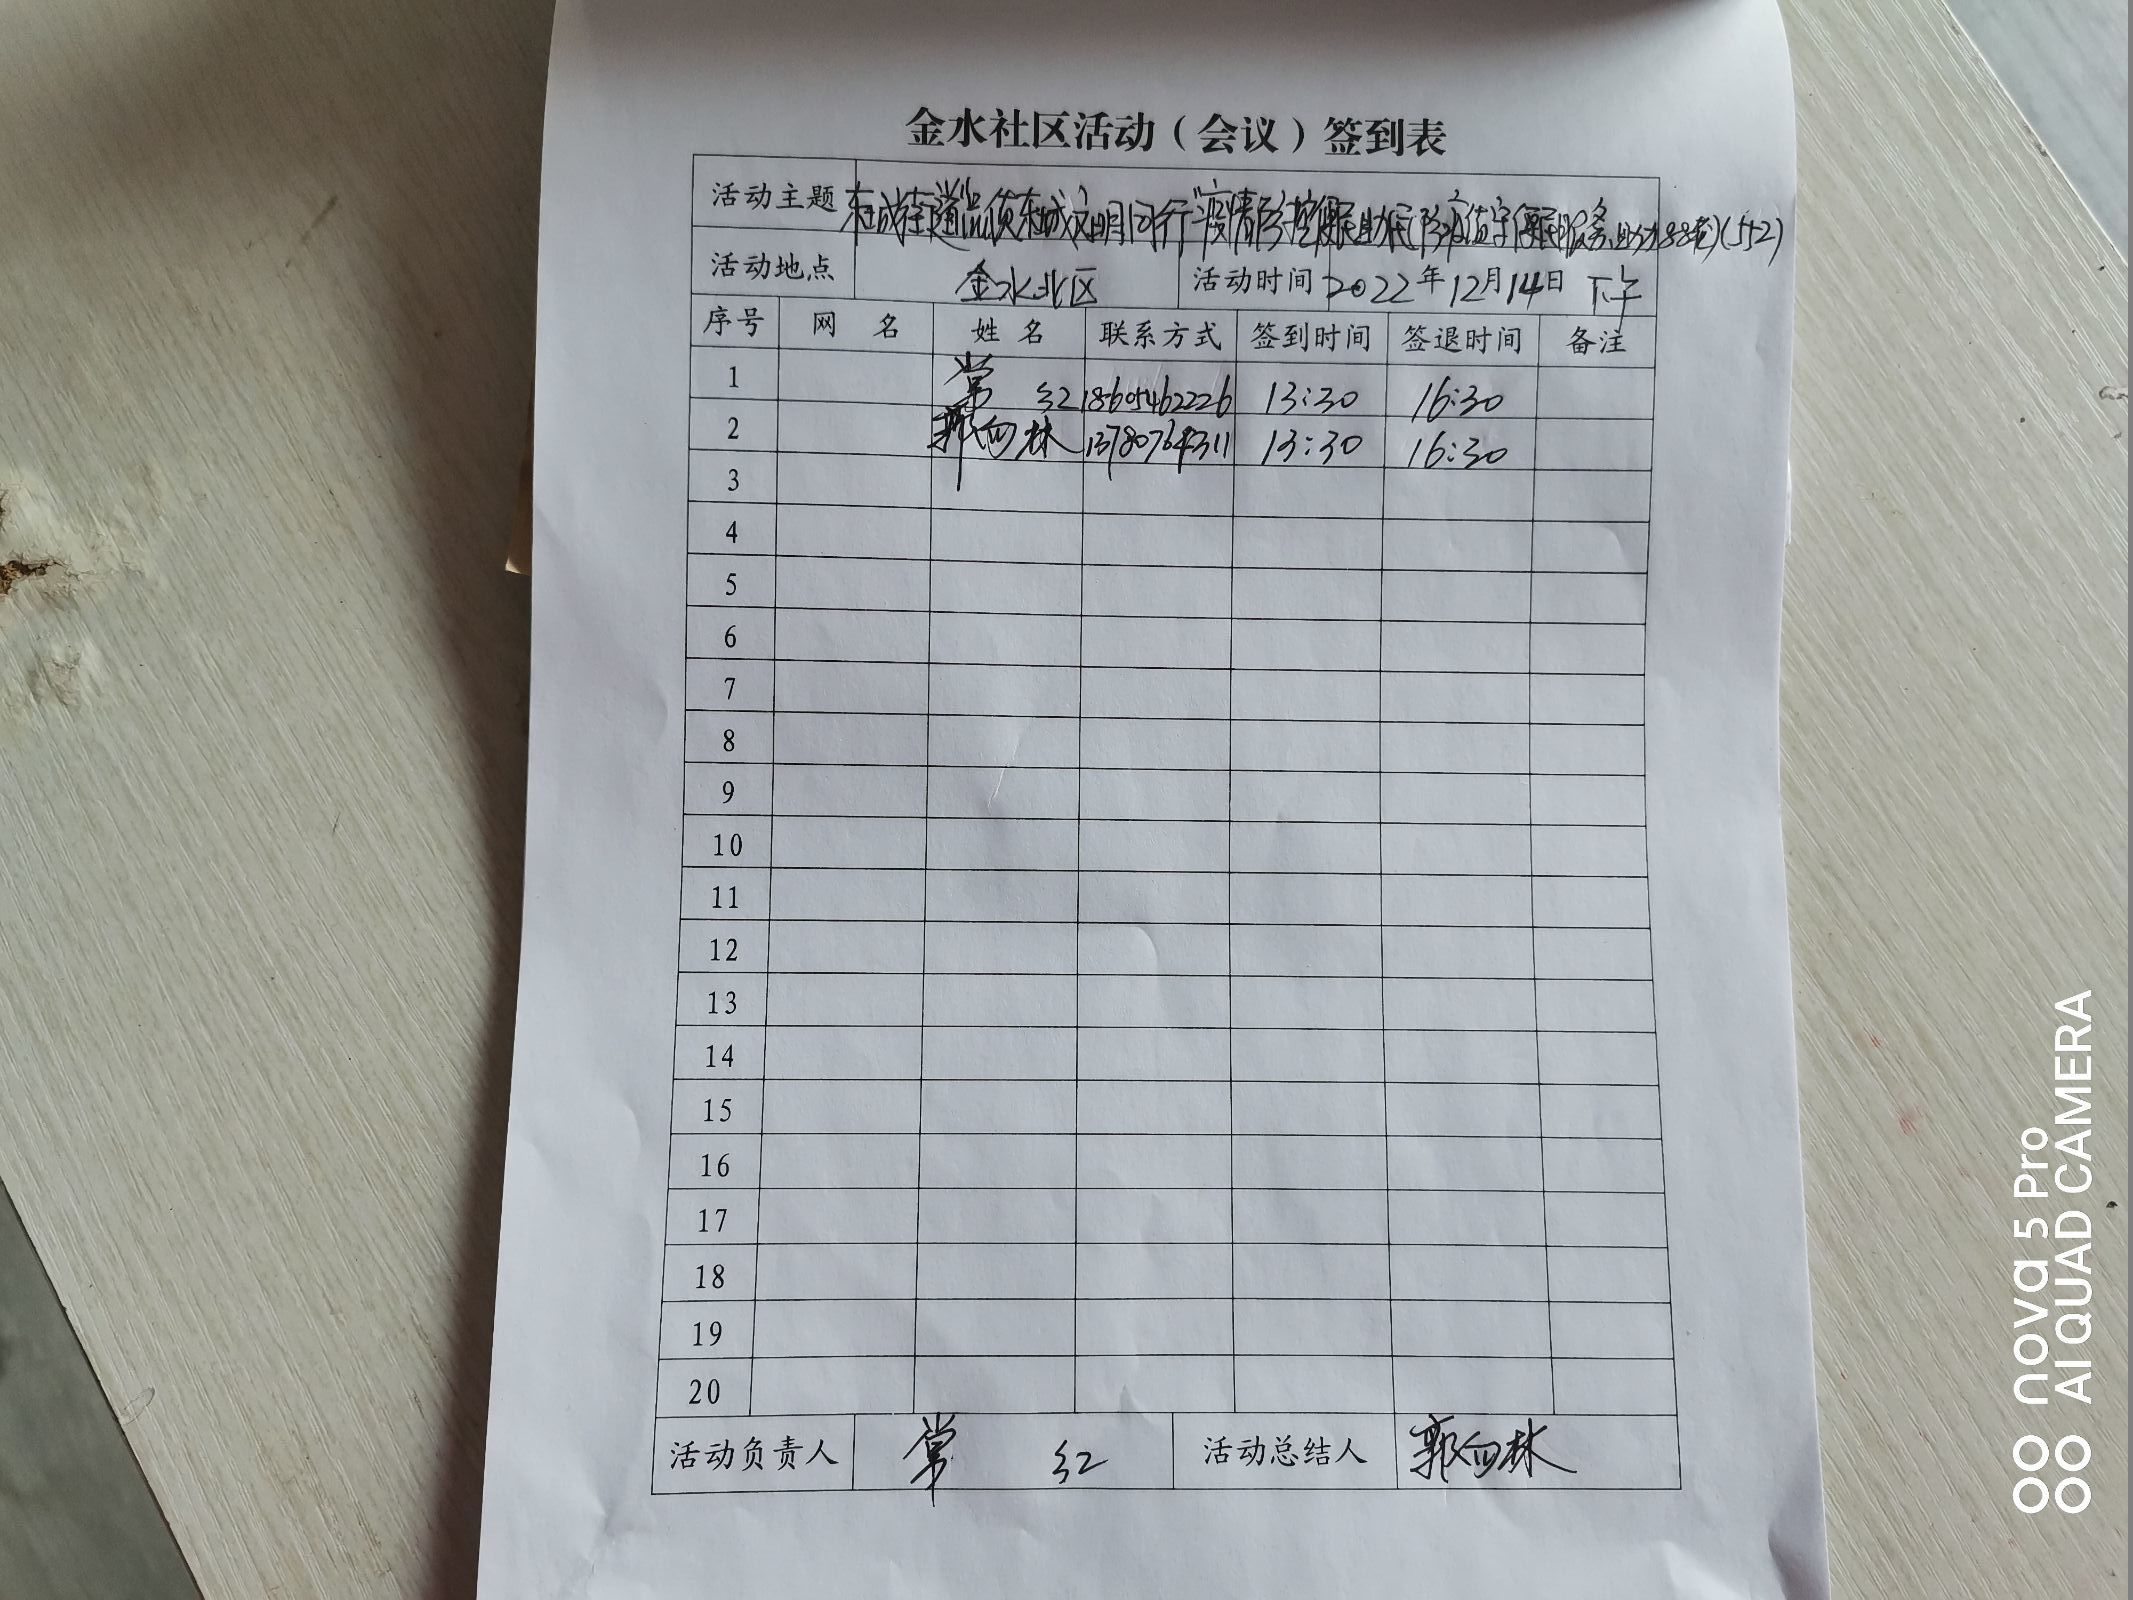 金水社区活动（会议）签到表
活动主题 东城街道"品质东城文明同行""疫情防控便民助民(防疫值守便民服务
活动地点 金水北区 活动时间 2022年12月14日 下午
序号 网 名 姓 名 联系方式 签到时间 签退时间 备注
1 常 红 18605462226 13:30 16:30
2 郭向林 13780764311 13:30 16:30
3
4
5
6
7
8
9
10
11
12
13
14
15
16
17
18
19
20
活动负责人 常 红 活动总结人 郭向林
nova 5 Pro
AI QUAD CAMERA